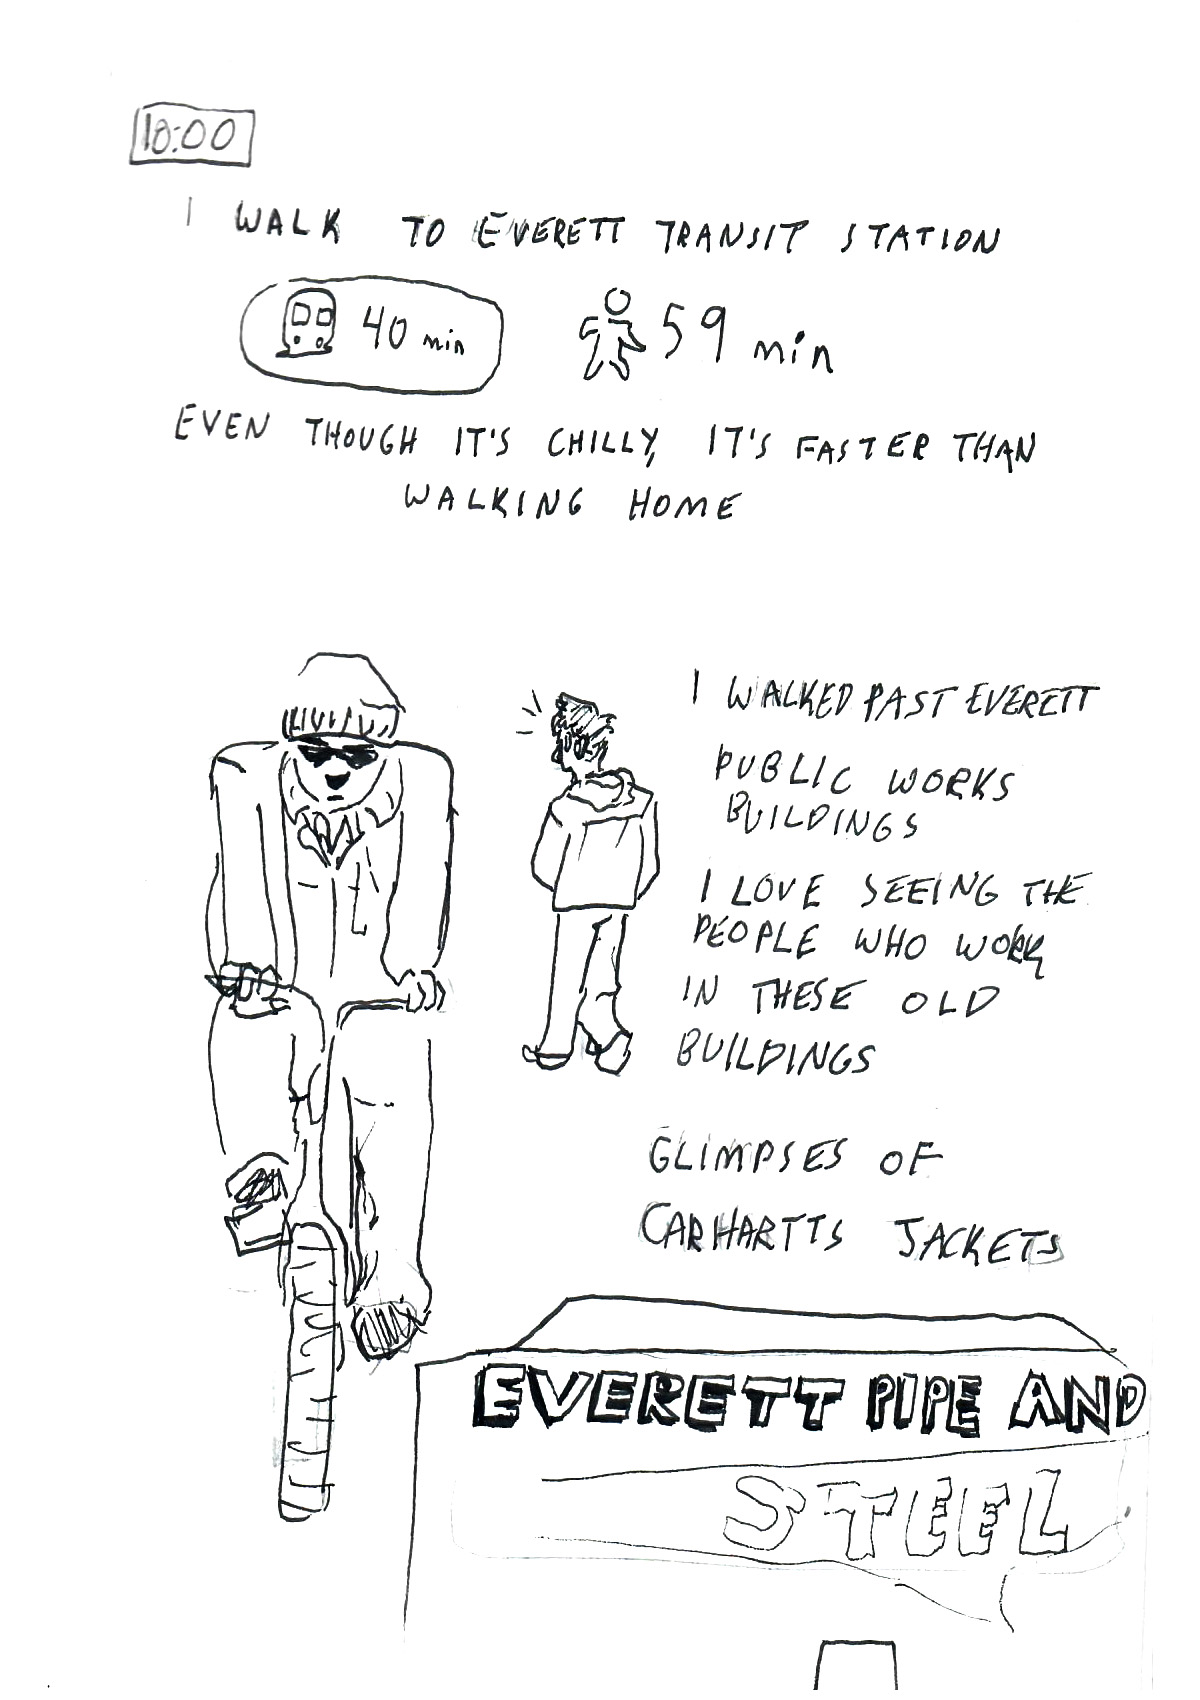 18:00
I WALK TO EVERETT TRANSIT STATION
40 min
59 min
EVEN THOUGH IT'S CHILLY, IT'S FASTER THAN
WALKING HOME
I WALKED PAST EVERETT
PUBLIC WORKS
BUILDINGS
I LOVE SEEING THE
PEOPLE WHO WORK
IN THESE OLD
BUILDINGS
GLIMPSES OF
CARHARTTS JACKETS
EVERETT PIPE AND
STEEL